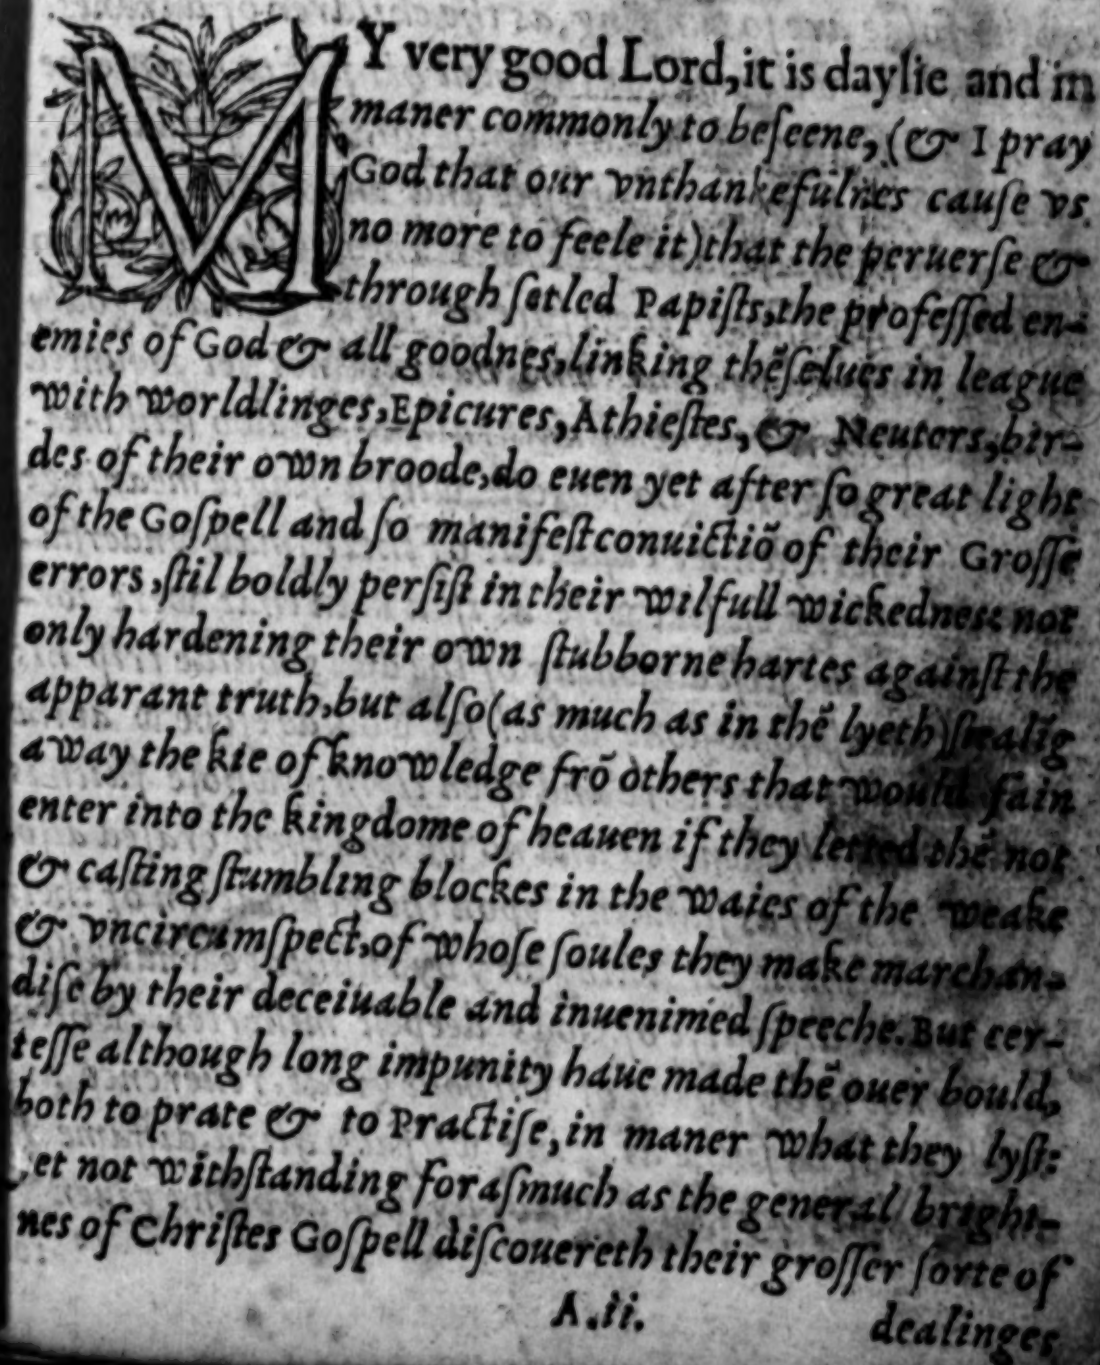 MY very good Lord, it is daylie and in
maner commonly to beſeene, (& I pray
God that our vnthankefulnes cauſe vs
no more to feele it) that the peruerſe &
through ſetled Papiſts, the profeſſed en-
emies of God & all goodnes, linking thẽſelues in league
with worldlinges, Epicures, Athieſtes, & Neuters, bir-
des of their own broode, do euen yet after ſo great light
of the Goſpell and ſo manifeſt conuictiõ of their Groſſe
errors, ſtil boldly perſiſt in their wilfull wickednes: not
only hardening their own ſtubborne hartes againſt the
apparant truth, but alſo (as much as in thẽ lyeth) ſtealĩg
away the kie of knowledge frõ others that would fain
enter into the kingdome of heauen if they letted thẽ not
& caſting ſtumbling blockes in the waies of the weake
& vncircumſpect, of whoſe ſoules they make marchan-
diſe by their deceiuable and inuenimed ſpeeche. But cer-
teſſe although long impunity haue made thẽ ouer bould,
both to prate & to Practiſe, in maner what they lyſt:
yet not withſtanding for aſmuch as the general bright-
nes of Chriſtes Goſpell diſcouereth their groſſer ſorte of
A.ii. dealinges